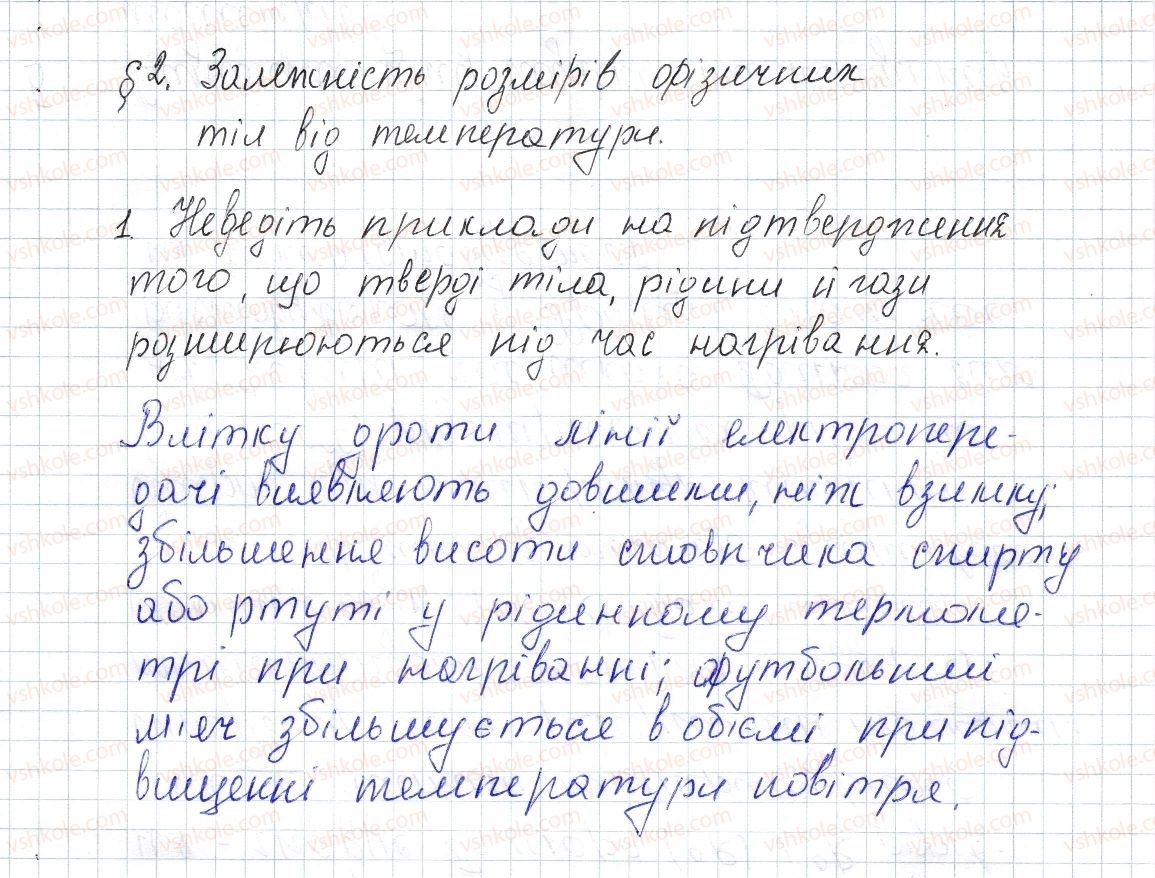 §2. Залежність розмірів фізичних
тіл від температури.
1. Неведіть приклади на підтвердження
того, що тверді тіла, рідини й газы
розширюються під час нагрівання.
Влітку дроти лінії електропере-
дачі виявіляють довшими, ніж взимку;
збільшення висоти стовпчика спирту
або ртуті у рідинному термоме-
трі при нагріванні; футбольний
міяч збільшується в обіємі при під-
вищенні температури повітря.